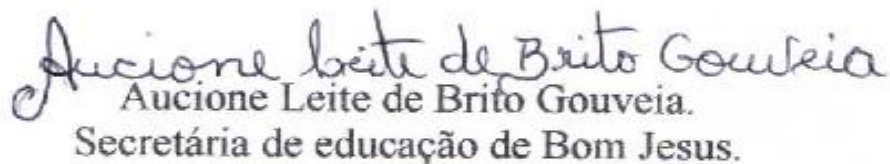 Aucione Leite de Brito Gouveia
Aucione Leite de Brito Gouveia.
Secretária de educação de Bom Jesus.